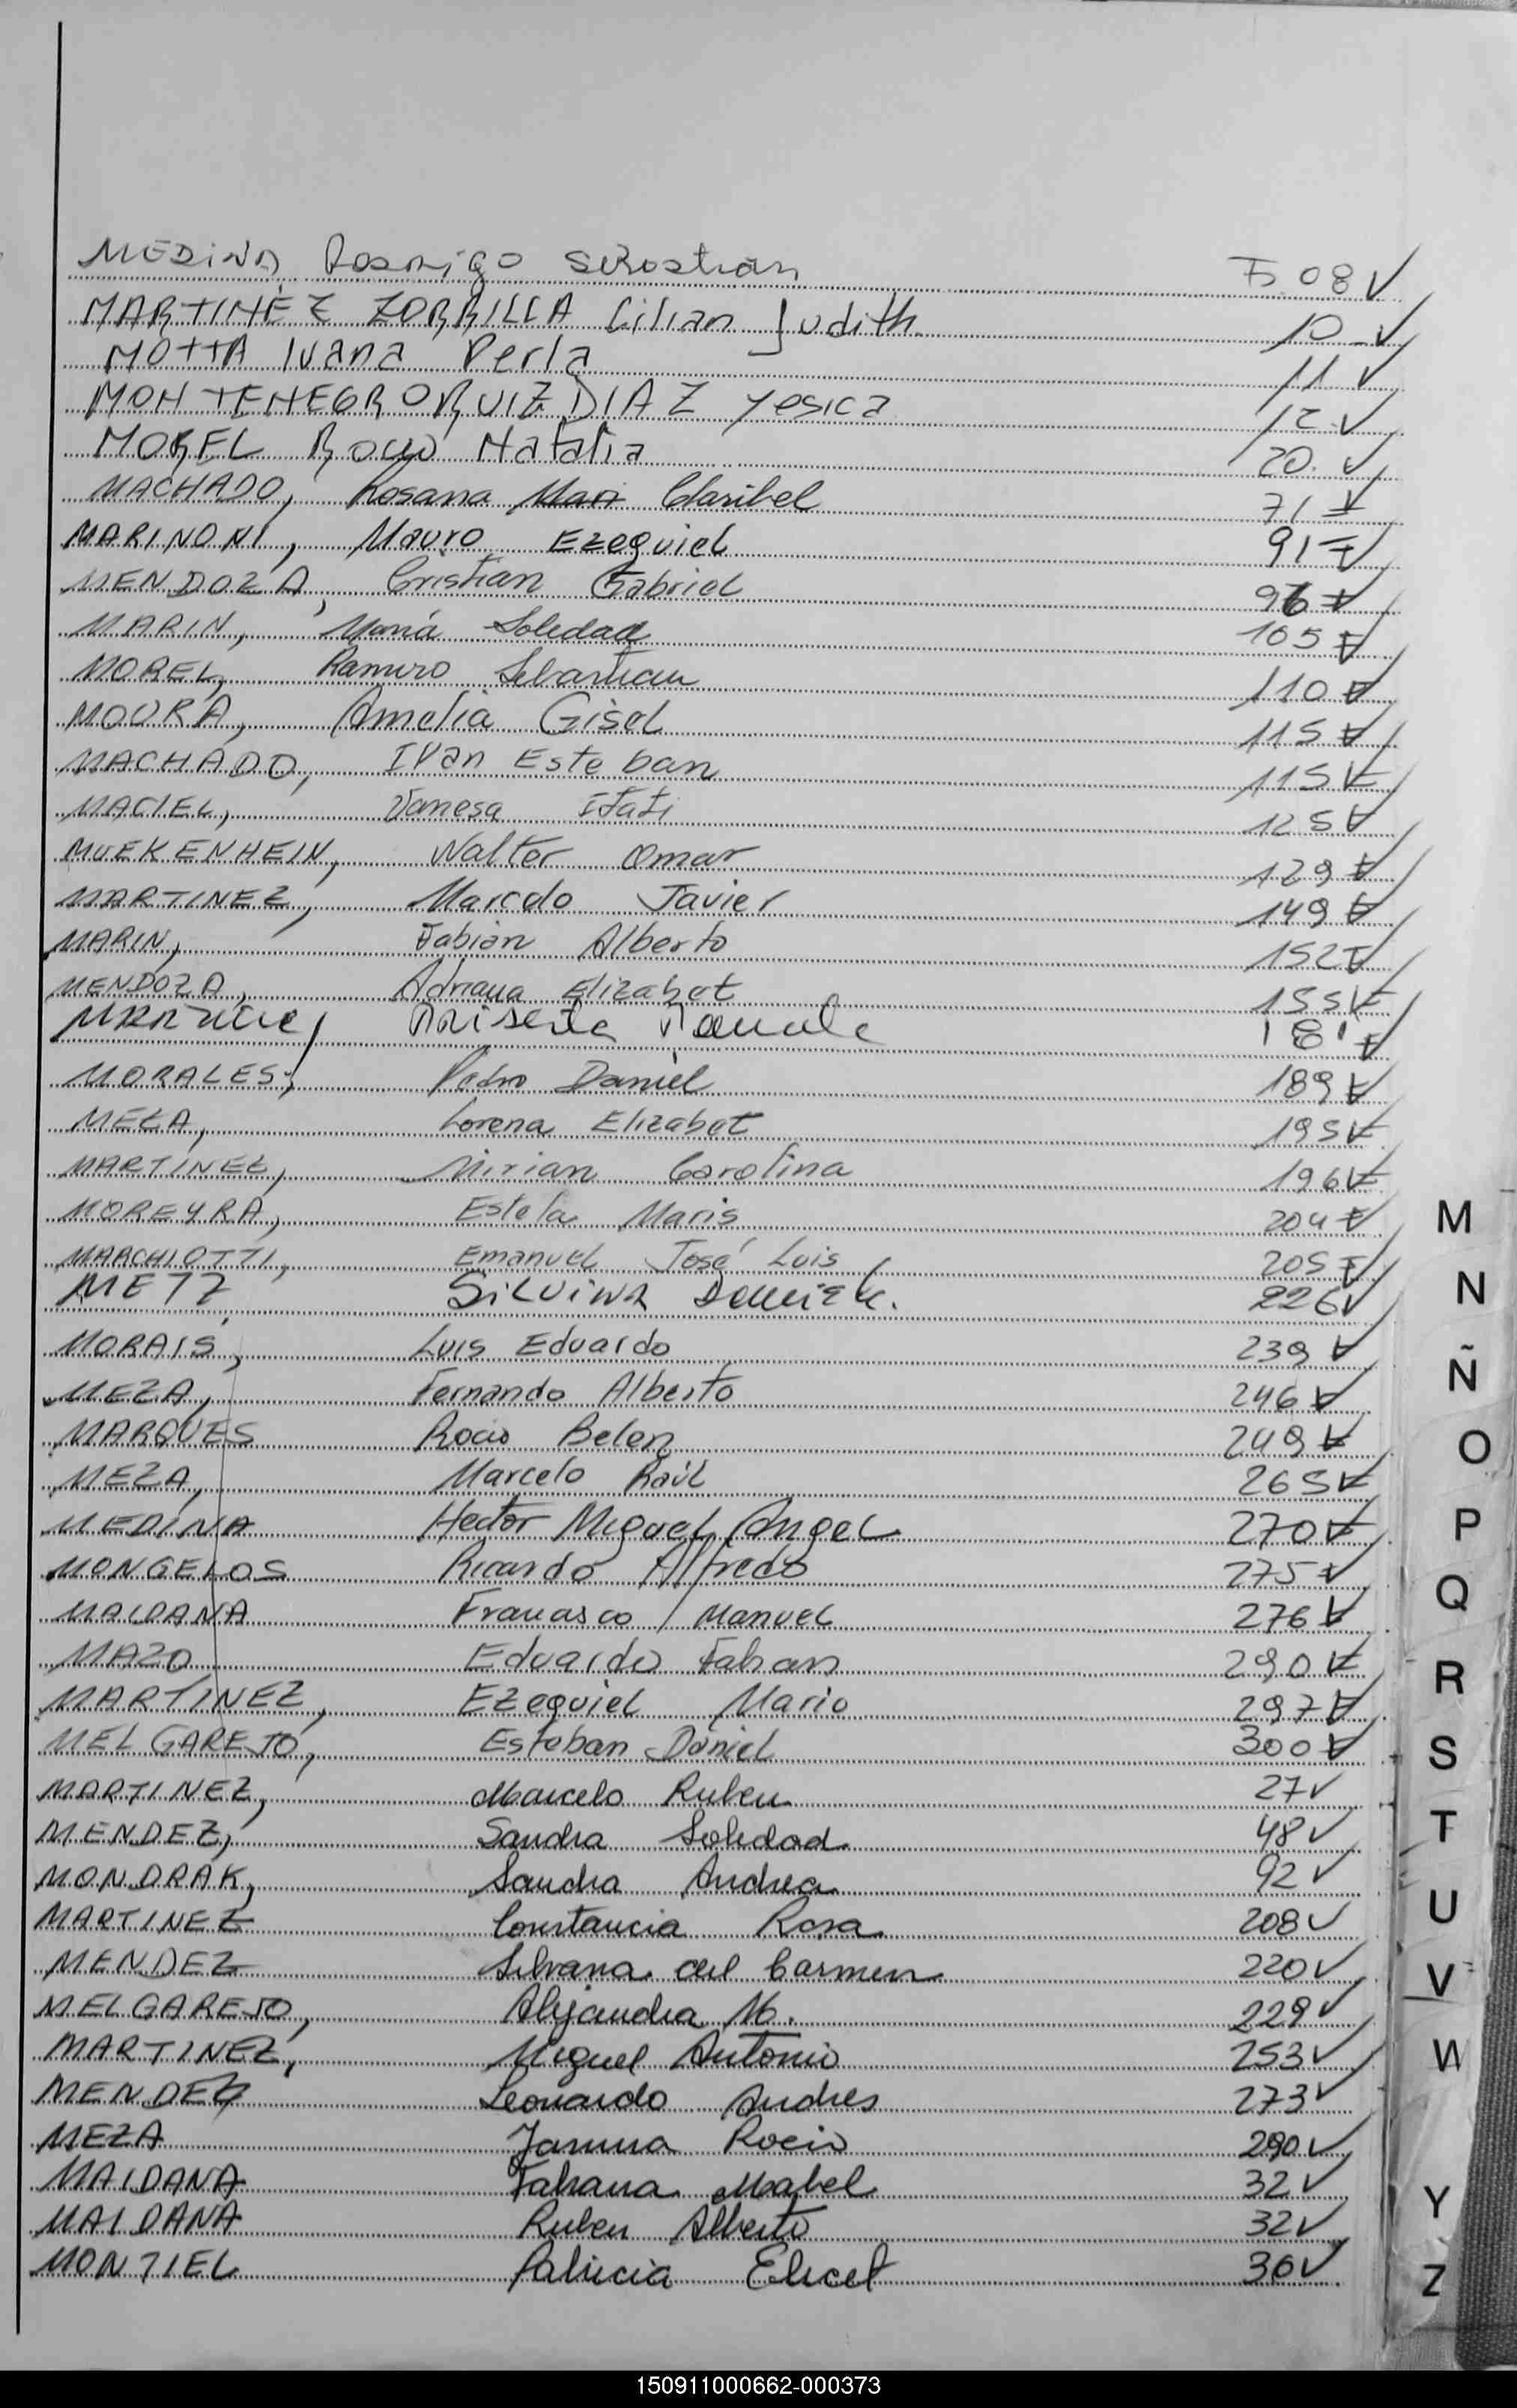 MEDINA Rodrigo Sebastian F. 08 ✓
MARTINEZ ZORRILLA Lilian Judith 10 ✓
MOTTA Ivana Perla 11 ✓
MONTENEGRO RUIZ DIAZ Yesica 12 ✓
MOREL Rocio Natalia 20 ✓
MACHADO, Rosana Claribel 71 ✓
MARINONI, Mauro Ezequiel 91 ✓
MENDOZA, Cristian Gabriel 96 ✓
MARIN, María Soledad 105 ✓
MOREL, Ramiro Sebastian 110 ✓
MOURA, Amelia Gisel 115 ✓
MACHADO, Ivan Esteban 115 ✓
MACIEL, Vanesa Itati 125 ✓
MUEKENHEIN, Walter Omar 129 ✓
MARTINEZ, Marcelo Javier 149 ✓
MARIN, Fabian Alberto 152 ✓
MENDOZA, Adriana Elizabet 155 ✓
181 ✓
MORALES, Pedro Daniel 189 ✓
MEZA, Lorena Elizabet 195 ✓
MARTINEZ, Mirian Carolina 196 ✓
MOREYRA, Estela Maris 204 ✓
MARCHIOTTI, Emanuel José Luis 205 ✓
METZ, Silvina 226 ✓
MORAIS, Luis Eduardo 239 ✓
MEZA, Fernando Alberto 246 ✓
MARQUES Rocio Belen 249 ✓
MEZA, Marcelo Raúl 265 ✓
MEDINA Hector Miguel Angel 270 ✓
MONGELOS Ricardo Alfredo 275 ✓
MALDANA Francisco Manuel 276 ✓
MAZO Eduardo Fabian 290 ✓
MARTINEZ, Ezequiel Mario 297 ✓
MELGAREJO, Esteban Daniel 300 ✓
MARTINEZ, Marcelo Ruben 27 ✓
MENDEZ, Sandra Soledad 48 ✓
MONDRAK, Sandra Andrea 92 ✓
MARTINEZ Constancia Rosa 208 ✓
MENDEZ Silvana del Carmen 220 ✓
MELGAREJO, Alejandra M. 229 ✓
MARTINEZ, Miguel Antonio 253 ✓
MENDEZ Leonardo Andres 273 ✓
MEZA Janina Rocio 290 ✓
MAIDANA Fabiana Mabel 32 ✓
MAIDANA Ruben Alberto 32 ✓
MONTIEL Patricia Elicet 36 ✓
M
N
Ñ
O
P
Q
R
S
T
U
V
W
Y
Z
150911000662-000373